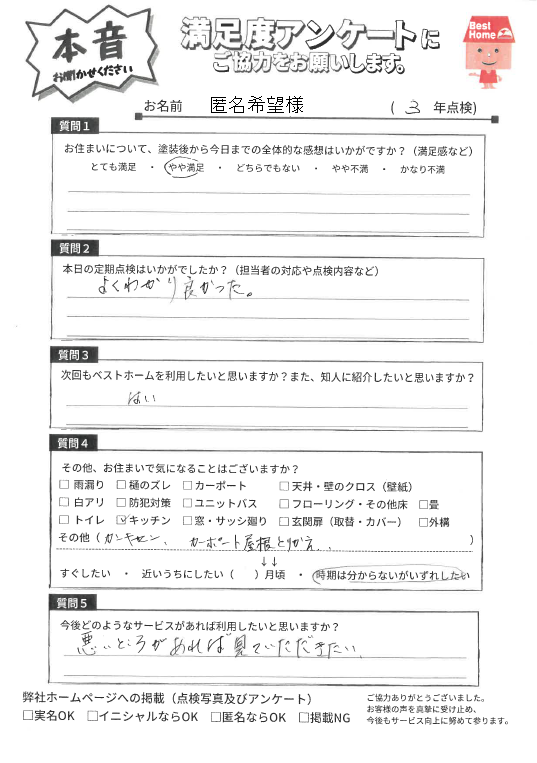 本音
お聞かせください
満足度アンケートに
ご協力をお願いします。
Best
Home
お名前 匿名希望様 ( 3 年点検)
質問1
お住まいについて、塗装後から今日までの全体的な感想はいかがですか?(満足感など)
とても満足 ・ やや満足 ・ どちらでもない ・ やや不満 ・ かなり不満
質問2
本日の定期点検はいかがでしたか?(担当者の対応や点検内容など)
よくわかり良かった。
質問3
次回もベストホームを利用したいと思いますか?また、知人に紹介したいと思いますか?
はい
質問4
その他、お住まいで気になることはございますか?
□ 雨漏り □ 樋のズレ □ カーポート □ 天井・壁のクロス(壁紙)
□ 白アリ □ 防犯対策 □ ユニットバス □ フローリング・その他床 □ 畳
□ トイレ ☑ キッチン □ 窓・サッシ廻り □ 玄関扉(取替・カバー) □ 外構
その他( カーポート屋根とりかえ、 )
↓↓
すぐしたい ・ 近いうちにしたい( )月頃 ・ 時期は分からないがいずれしたい
質問5
今後どのようなサービスがあれば利用したいと思いますか?
悪いところがあれば見ていただきたい
弊社ホームページへの掲載(点検写真及びアンケート)
□実名OK □イニシャルならOK □匿名ならOK □掲載NG
ご協力ありがとうございました。
お客様の声を真摯に受け止め、
今後もサービス向上に努めて参ります。